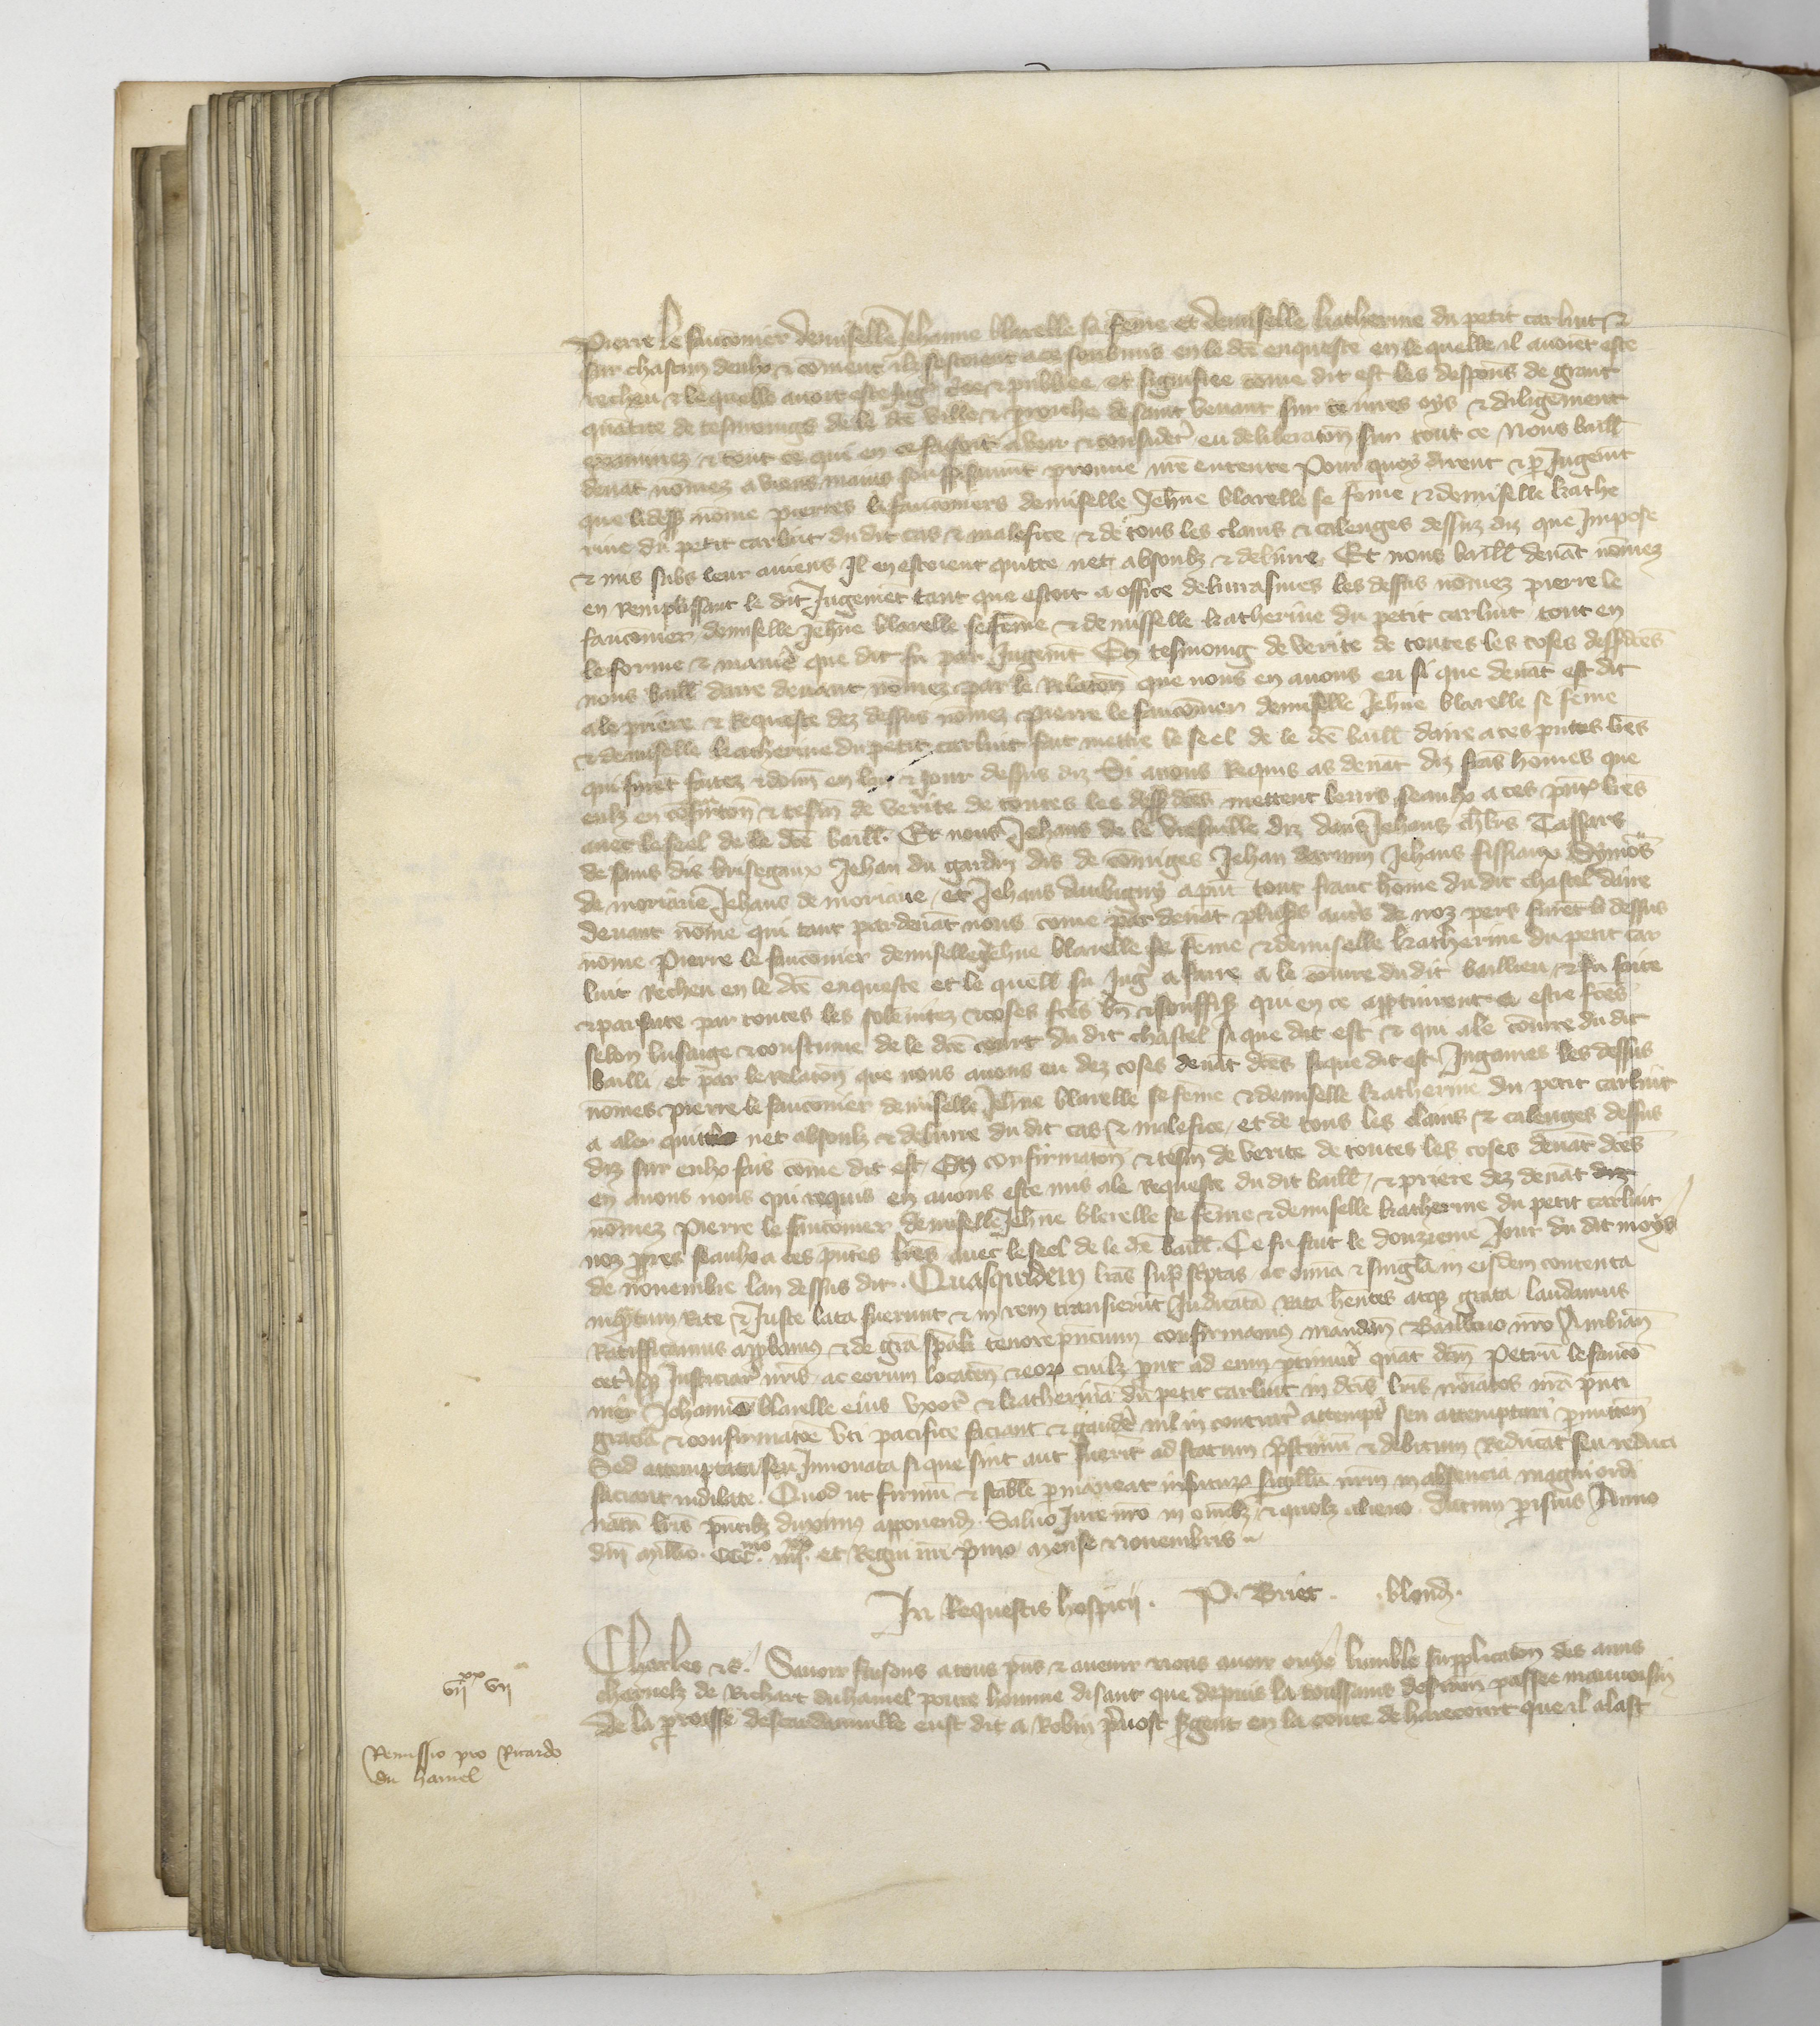 Pierre le fauconnier demiselle Jehanne blarelle sa fēme et demiselle katherine du petit carluit &
sur chascun deulx & cōment ilz sestoient a ce soubmis en le dc̄e enqueste en le quelle il auoiēt este
recheu & le quelle auoit este jug' Ree & publiiee et signifiee cōme dit est les despons de grant
quātite de tesmoings de le dc̄e ville & proiche de saint venant sur ce jures oys & diligēment
examinez & tout ce qui en ce faisoit a veir & considerer eu deliberatōn sur tout ce Nous baill
deuāt nōmez auiens mains souffissāment prouue nr̄e entente Pour quoy dirent & p̄ Jugemt
que ledess nōme pierres lifauconniers demiselle Jeh̄ne blarelle se feme & demiselle kathe
rine du petit carluit du dit cas & malefice & de tous les clams & calenges dessuz diz que Impose
& mis subs leur auiens Il en estoient quitte net absoulz & deliure Et nous baill deuāt nōmez
en remplissant le dit Jugemēt tant que estoit a office deliurasmes les dessus nōmez pierre le
fauconier demiselle Jeh̄ne blarelle se fēme & demisselle katherine du petit carluit tout en
le forme & maniē que dit fu par Jugemt En tesmoing de verite de toutes les coses dessdc̄es
nous baill daire deuant nōmez par le Relatōn que nous en auons eu si que deuāt est dit
a le priere & Requeste dez dessus nōmez pierre le fauconier demiselle Jeh̄ne blarelle se feme
& demiselle katherine du petit carluit fait mettre le seel de le dc̄e baill daire a ces pn̄tes lr̄es
qui furēt faitez & donn en lan & jour dessus diz Si auons Requis as deuāt diz frās hōmes que
eulz en cōfirmatōn & tesm̄ de verite de toutes les dess dc̄es mettent leurs seaulx a ces pn̄tes lr̄es
auec le seel de le dc̄e baill. Et nous Jehans de le viesuille diz dans Jehans ch̄lrs Tassars
de sains dis brisegaux Jehan du gardin dis de cōmiges Jehan darum Jehans fissiaux Symōs
de moriaue Jehans de moriaue et Jehans daubigny a pn̄t tout franc hōme du dit chastel daire
deuant nōme qui tant par deuāt nous cōme par deuāt plusrs autrs de noz pers furēt li dessus
nōme Pierre le fauconier demiselle Jeh̄ne blarelle se fēme & demiselle katherine du petit car
luit recheu en le dc̄e enqueste et le quell fu jug' a faire a le cōiure du dit baillieu & fu faite
& parfaite par toutes les solēnitez & coses fc̄es bn̄ & souffiss qui en ce apptinrent a estre fc̄es
selon lusaige & coustume de le dc̄e court du dit chastel si que dit est & qui a le cōiure du dit
bailli et par le relatōn que nous auons eu dez coses deuāt dc̄es si que dit est Jugames les dessus
nōmes pierre le fauconier demiselle Jeh̄ne blarelle se fēme & demiselle katherine du petit carluit
a aler quitte net absoulz & deliure du dit cas & malefice et de tous les clams & calenges dessus
diz sur eulx fais cōme dit est En confirmatōn & tesm̄ de verite de toutes les coses deuāt dc̄es
en auons nous qui requis en auons este mis a le requeste du dit baill & priere dez deuāt diz
nōmez Pierre le fauconier demiselle Jeh̄ne blerelle se fēme & demiselle katherine du petit carluit
noz ppres seaulx a ces pn̄tes lr̄es auec le seel de le dc̄e baill. Ce fu fait le douzieme Jour du dit moys
de nouembre lan dessus dit. Quasquidem lr̄as sup̄scriptas ac om̄ia & singl̄a in eisdem contenta
inq̄ntum rite & juste lata fuerunt & in rem transierūt judicatā Rata hēntes atq̢ grata laudamus
Ratifficamus app̄bam̢ & de gr̄a sp̄ali tenore pn̄cium confirmam̢ mandan̄ Bailliuo nr̄o Ambian̄
ceterisq̢ Justiciar' nr̄is ac eorum locaten̄ & eor̄ cuilz pūt ad eum ptinuit̄ quat' dc̄m Petrū le fauco
nier Johannā blarelle eius vxor' & katherinā du petit carluit in dc̄is lr̄is noīatos nr̄a pn̄ti
gracia & confirmatōe vti pacifice faciant & gaudē nil in contrar' attempt' seu attemptari pmitten̄
Sed attemptata seu Innouata si que sint aut fuerīt ad statum pstinū & debitum Reducāt seu reduci
faciant indilate. Quod ut firmū & stabile pmaneat in futur̄ sigillū nr̄m in absencia magni ordi
natū lr̄is pn̄tibz duxim̢ apponend. Saluo jure nr̄o in om̄ibz & quolz alieno. datum parisius Anno
dn̄i mill̄o. CCCmo. iiijxx. et Regni nr̄i p̄mo mense nouembris..
In Requestis hospicij. P. Briet. .blond.
Charles &c̄. Sauoir faisons a tous pn̄s & auenir nous auoir oy lumble supplicatōn des amis
charnelz de Richart du hamel poure homme disant que depuis la toussains derrein passee mauuoisin
de la p̄oisse descardanuille eust dit a Robin p̄uost sgent en la conte de harecourt que il alast
viixx vii
Remissio pro Ricardo
du hamel